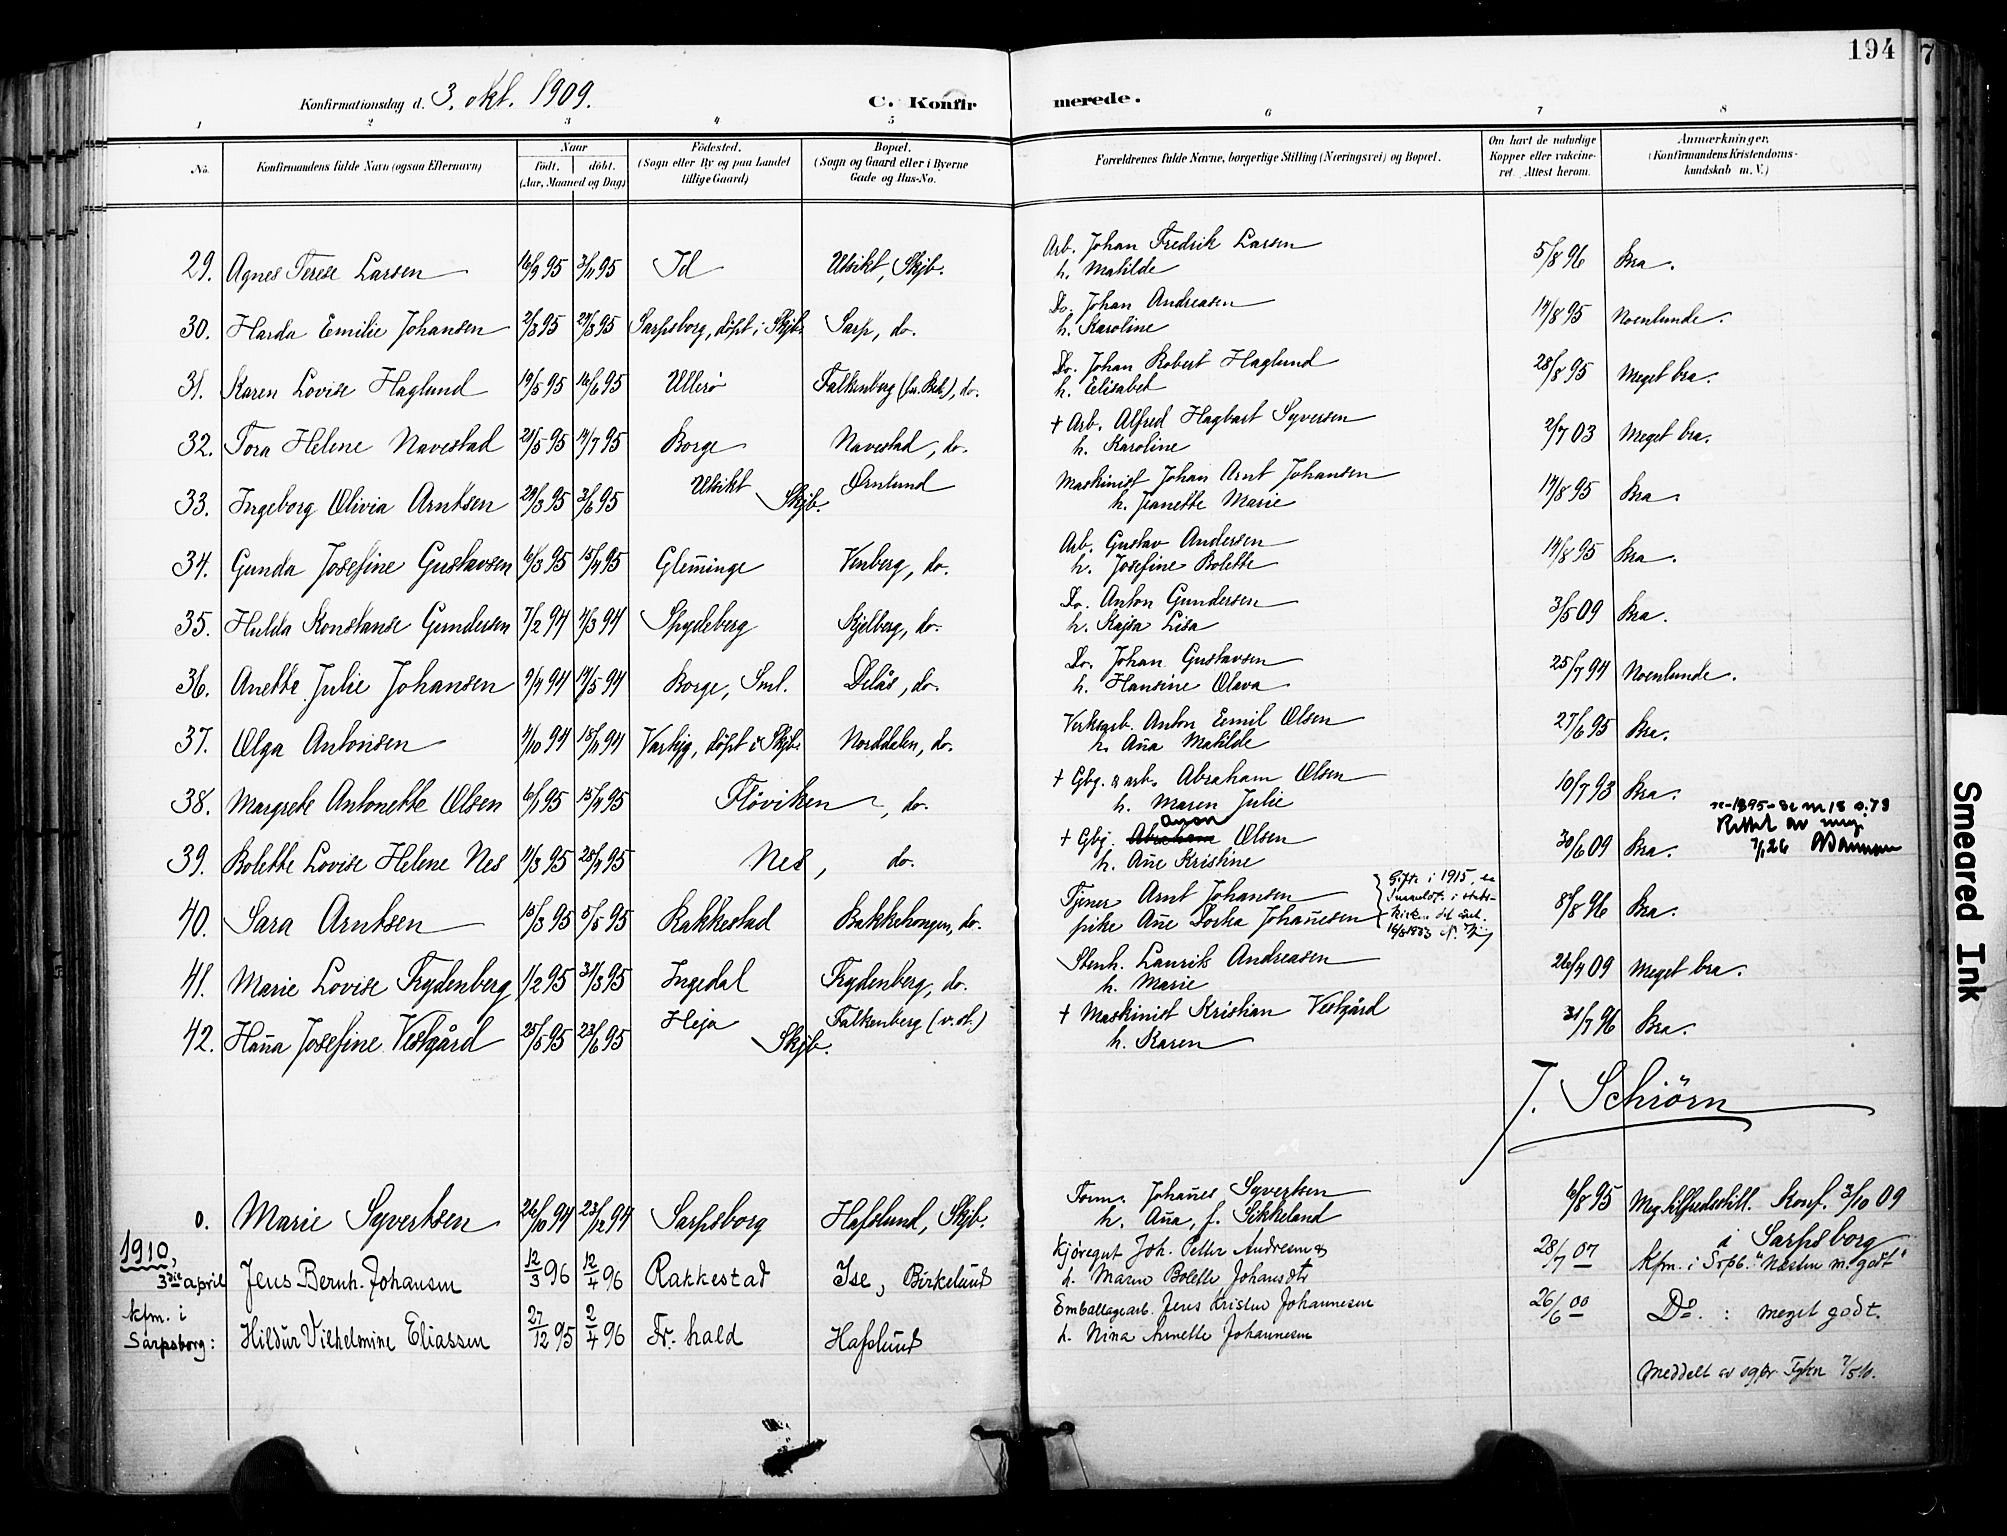 194
7
Konfirmationsdag d. 3. okt. 1909.
C. Konfirmerede.
1 2 3 4 5 6 7 8
No.
Konfirmandens fulde Navn (ogsaa Efternavn)
Naar
født. døbt.
(Aar, Maaned og Dag)
Fødested.
(Sogn eller By og paa Landet
tillige Gaard)
Bopæl.
(Sogn og Gaard eller i Byerne
Gade og Hus-No.
Forældrenes fulde Navne, borgerlige Stilling (Næringsvei) og Bopæl.
Om havt de naturlige
Kopper eller vakcine-
ret. Attest herom.
Anmærkninger.
(Konfirmandens Kristendoms-
kundskab m. V.)
29. Agnes Terese Larsen 16/9 95 3/11 95 Id Utsikt, Skjb. Arb. Johan Fredrik Larsen 5/8 96 Bra.
h. Matilde
30. Harda Emilie Johansen 2/3 95 24/3 95 Sarpsborg, döpt i Skjb. Sarp, do. Do. Johan Andreasen 14/8 95 Noenlunde.
h. Karoline
31. Karen Lovise Haglund 19/5 95 16/6 95 Ullerø Falkenberg, do. Do. Johan Robert Haglund 28/8 95 Meget bra.
h. Elisabet
32. Tora Helene Navestad 21/5 95 14/7 95 Borge Navestad, do. + Arb. Alfred Hagbart Syversen 2/7 03 Meget bra.
h. Karoline
33. Ingeborg Olivia Arntsen 29/3 95 3/6 95 Utsikt Ørnlund Skjb. Maskinist Johan Arnt Johansen 14/8 95 Bra
h. Jeanette Marie
34. Gunda Josefine Gustavsen 6/3 95 15/4 95 Glem̄inge Venberg, do. Arb. Gustav Andersen 14/8 95 Bra.
h. Josefine Bolette
35. Hulda Konstanse Gundersen 7/2 94 11/3 94 Spydeberg Kjelberg, do. Do. Anton Gundersen 3/5 09 Bra.
h. Kajsa Lisa
36. Anette Julie Johansen 9/4 94 14/5 94 Borge, Sml. Delås, do. Do. Johan Gustavsen 25/7 94 Noenlunde.
h. Hansine Olava
37. Olga Antonsen 4/10 94 18/11 94 Varteig, döpt i Skjb. Norddalen, do. Verksarb. Anton Emil Olsen 27/6 95 Bra.
h. An̄a Matilde
38. Margrete Antonette Olsen 6/1 95 15/4 95 Fløviken, do. + Gbg. & arb. Abraham Olsen 10/7 93 Bra.
h. Maren Julie
1895 - se nr 18 s. 73
Rettet av mig
7/1 26
39. Bolette Lovise Helene Nes 11/3 95 28/4 95 Nes, do. + Gbg. Abraham Anon Olsen 30/6 09 Bra.
h. An̄e Kristine
40. Sara Arntsen 15/3 95 5/5 95 Rakkestad Bakkehougen, do. Tjener Arnt Johansen 8/8 96 Bra.
pike An̄e Dorka Johan̄esen
Gifte i 1915
41. Marie Lovise Frydenberg 1/2 95 31/3 95 Ingedal Frydenberg, do. Stenh. Laurits Andreasen 26/4 09 Meget bra.
h. Marie
42. Han̄a Josefine Vestgård 25/5 95 23/6 95 Heja Falkenberg (v. st.) Skjb. + Maskinist Kristian Vestgård 31/7 96 Bra.
h. Karen
J. Schiörn
0. Marie Syvertsen 26/10 94 23/12 94 Sarpsborg Hafslund, Skjb. Form. Johan̄es Syvertsen 6/8 95 Meg. tilfredsstill. Konf. 3/10 09
h. An̄a, f. Sikkeland i Sarpsborg
1910,
3die april Jens Bernh. Johansen 12/3 96 12/4 96 Rakkestad Ise, Birkelund Kjöregut Joh. Petter Andresen & 28/7 07 Kfm. i Srpb. "Næsten m. godt"
h. Maren Bolette Johansdtr
kfm. i
Sarpsborg: Hildur Vilhelmine Eliassen 27/12 95 2/4 96 Fr. hald Hafslund Emballagearb. Jens Kristen Johannesen 26/6 00 Do. : meget godt.
h. Nina Annette Johannesen
Meddelt av sgpr. 7/5 10.
Smeared Ink